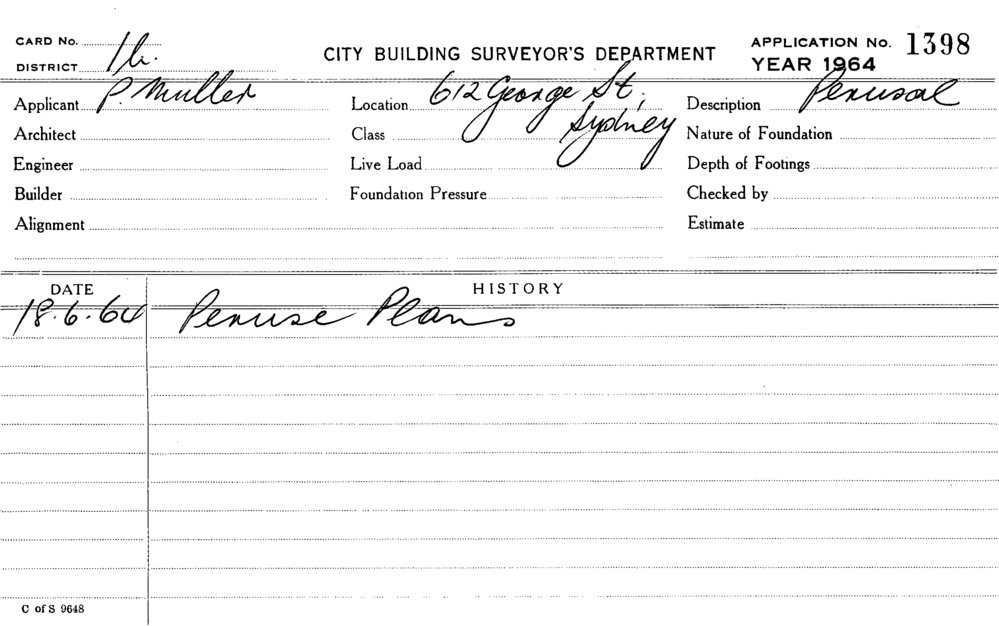 CARD No. 1b.
DISTRICT
CITY BUILDING SURVEYOR'S DEPARTMENT
APPLICATION No. 1398
YEAR 1964
Applicant P. Muller
Location 612 George St,
Sydney
Description Perusal
Architect
Class
Nature of Foundation
Engineer
Live Load
Depth of Footings
Builder
Foundation Pressure
Checked by
Alignment
Estimate
DATE
HISTORY
18.6.64 Peruse Plans
C of S 9648